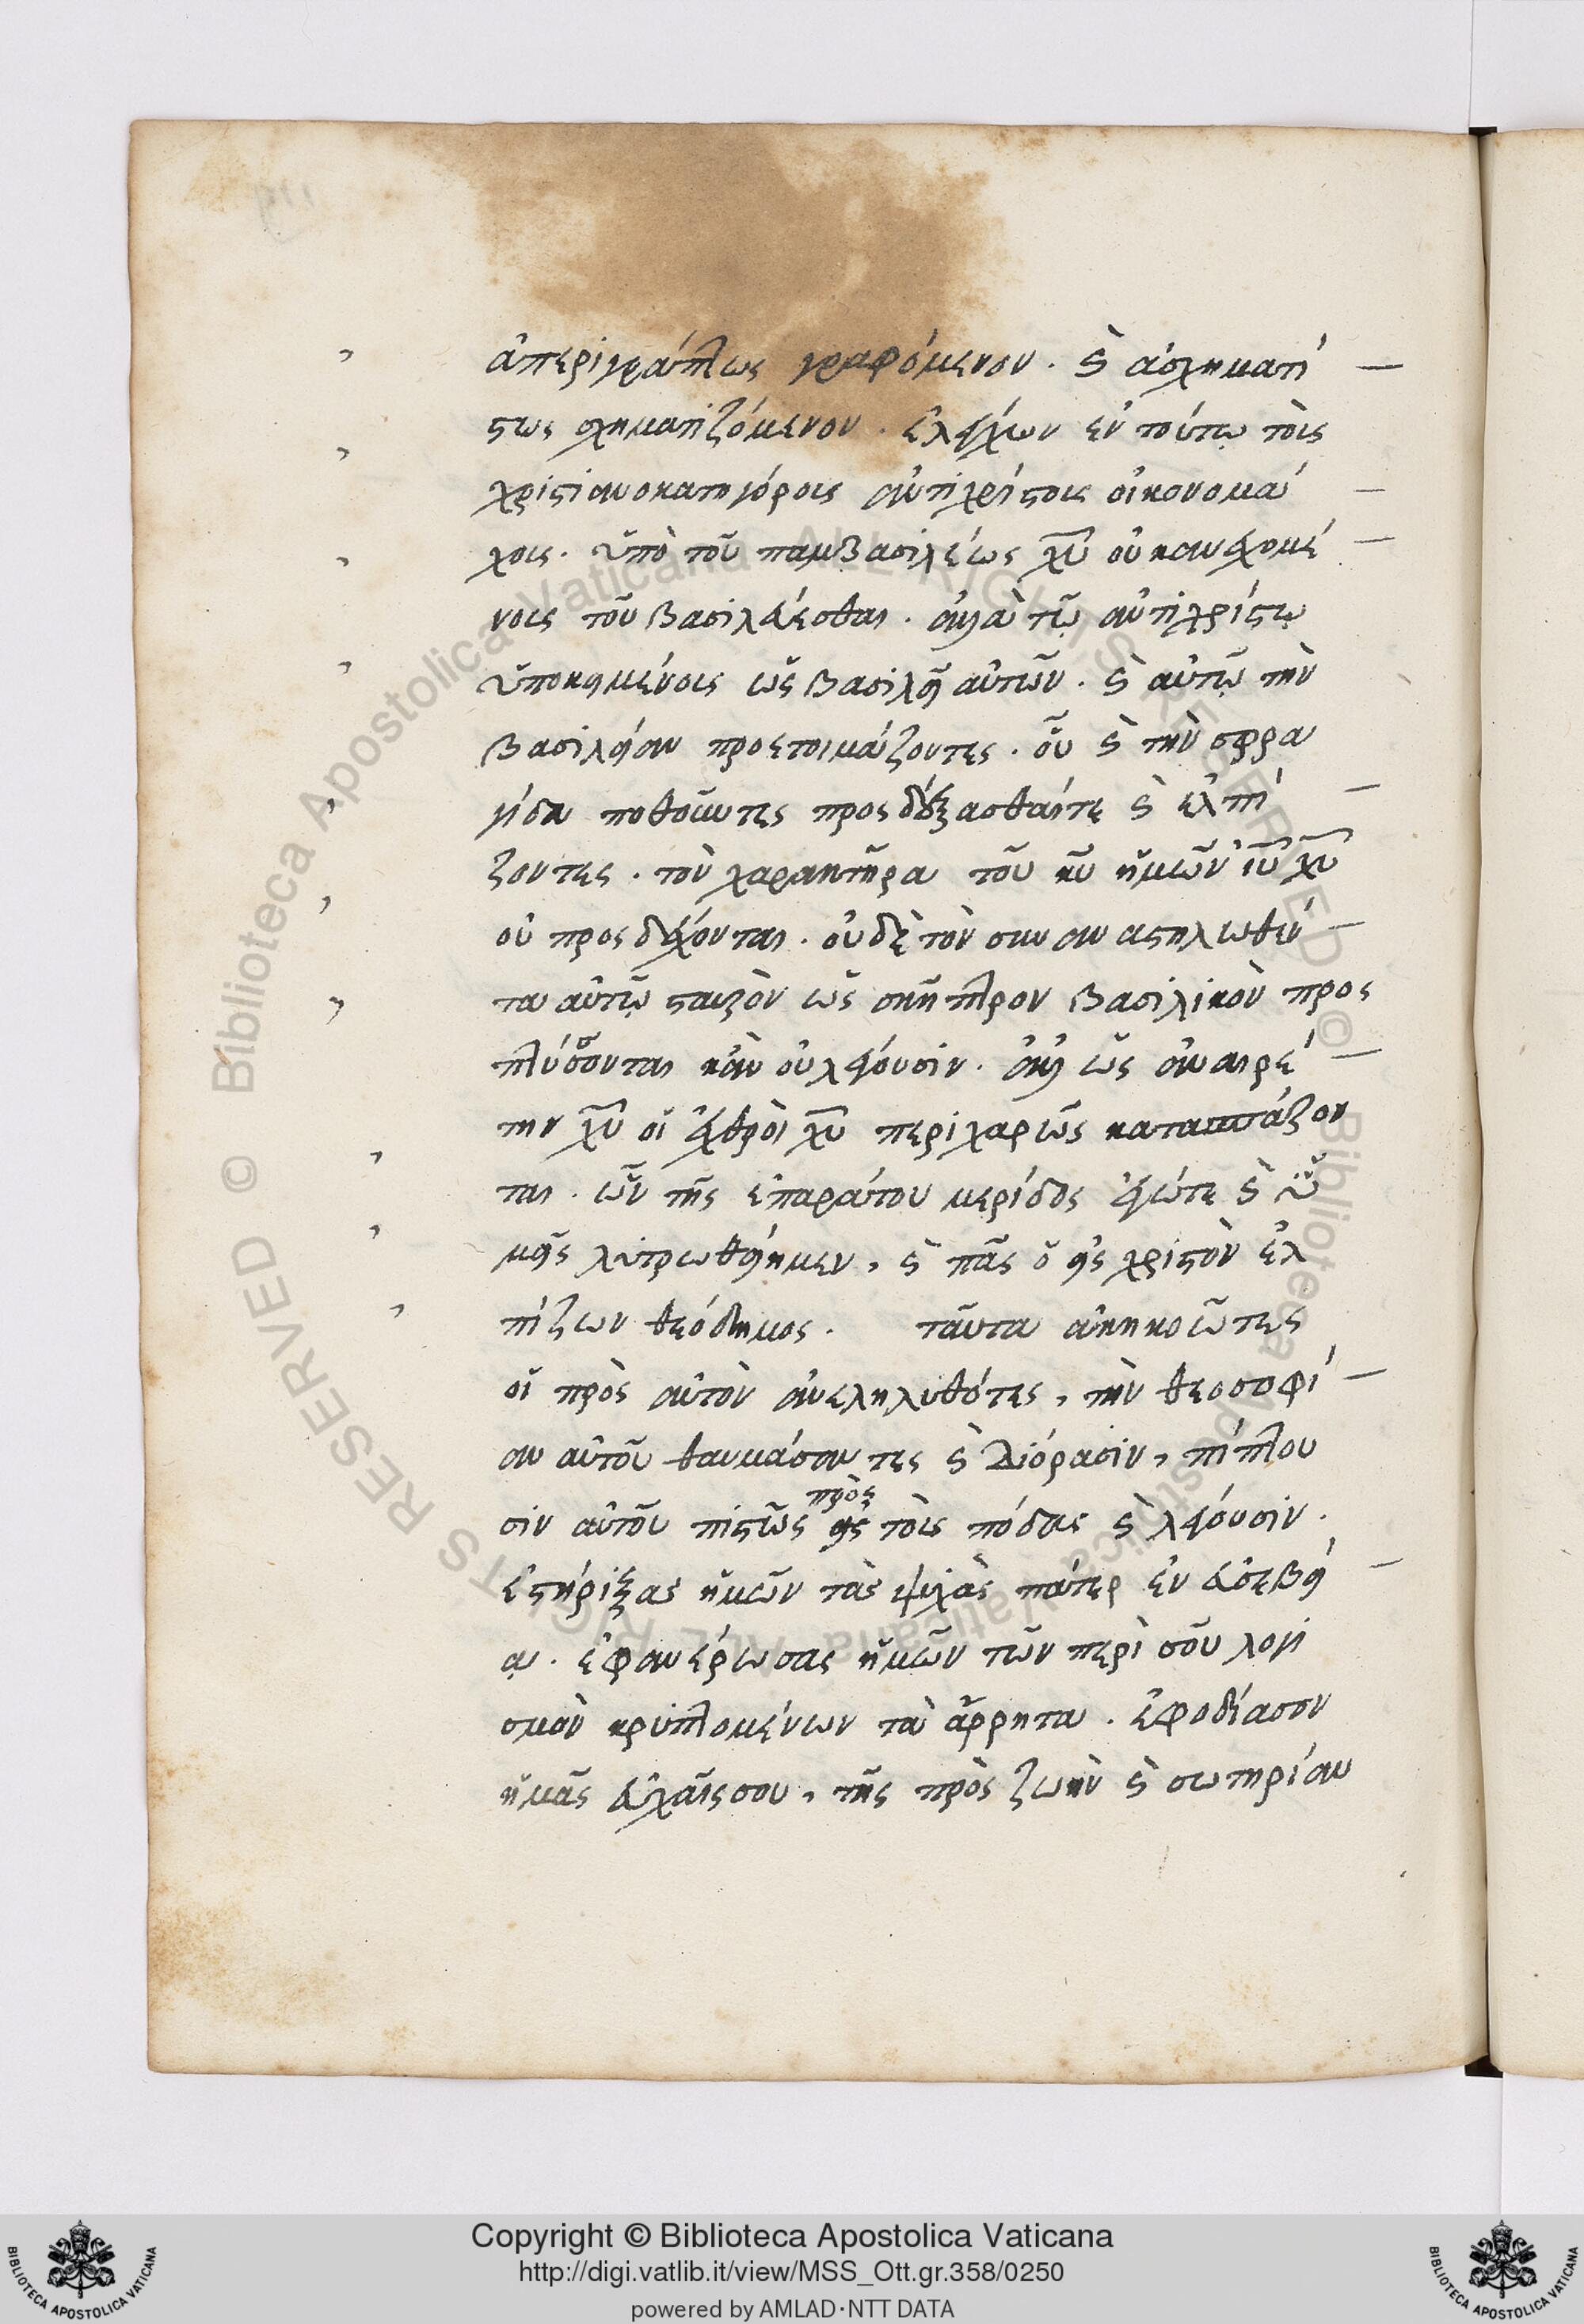 ἀπεριγράπτως γραφόμενον. ϛ ἀσχηματί
στως σχηματιζόμενον. ἐλέγχων ἐν τούτῳ τοῖς
χριστιανοκατηγόροις ἀντιχρίστοις εἰκονομά
χοις. ὑπὸ τοῦ παμβασιλέως χυ οὐκ ἀνεχομέ
νοις τοῦ βασιλεύεσθαι. ἀλλὰ τῷ ἀντιχρίστῳ
ὑποκειμένοις ὡς βασιλεῖ αὐτῶν. ϛ αὐτῷ τὴν
βασιλείαν προετοιμάζοντες. οὗ ϛ τὴν σφρα
γίδα ποθοῦντες προσδέξασθαί τε ϛ ἐλπί
ζοντες. τὸν χαρακτῆρα τοῦ κυ ἡμῶν ιυ χυ
οὐ προσδέχονται. οὐδὲ τὸν συναναστηλωθέν
τα αὐτῷ σταυρὸν ὡς σκῆπτρον βασιλικὸν προσ
πτύσσονται κἂν οὐ λέγουσιν. ἀλλ' ὡς ἀναιρέ
την χυ οἱ ἐχθροὶ χυ περιχαρῶς κατασπάζον
ται. ὧν τῆς ἐπαράτου μερίδος ἐγώ τε ϛ ὑ
μεῖς λυτρωθείημεν, ϛ πᾶς ὁ εἰς χριστὸν ἐλ
πίζων θεόδημος. ταῦτα ἀκηκοῶτες
οἱ πρὸς αὐτὸν ἀνεληλυθότες, τὴν θεοσοφί
αν αὐτοῦ θαυμάσαντες ϛ διόρασιν, πίπτου
σιν αὐτοῦ πιστῶς εἰς πρὸς τοῖς πόδας ϛ λέγουσιν.
ἐστήριξας ἡμῶν τὰς ψυχὰς πάτερ ἐν εὐσεβεί
ᾳ. ἐφανέρωσας ἡμῶν τῶν περὶ σοῦ λογι
σμὸν κρυπτομένων τὰ ἄρρητα. ἐφοδίασον
ἡμᾶς εὐχαῖς σου, τῆς πρὸς ζωὴν ϛ σωτηρίαν
Copyright © Biblioteca Apostolica Vaticana
http://digi.vatlib.it/view/MSS_Ott.gr.358/0250
powered by AMLAD·NTT DATA